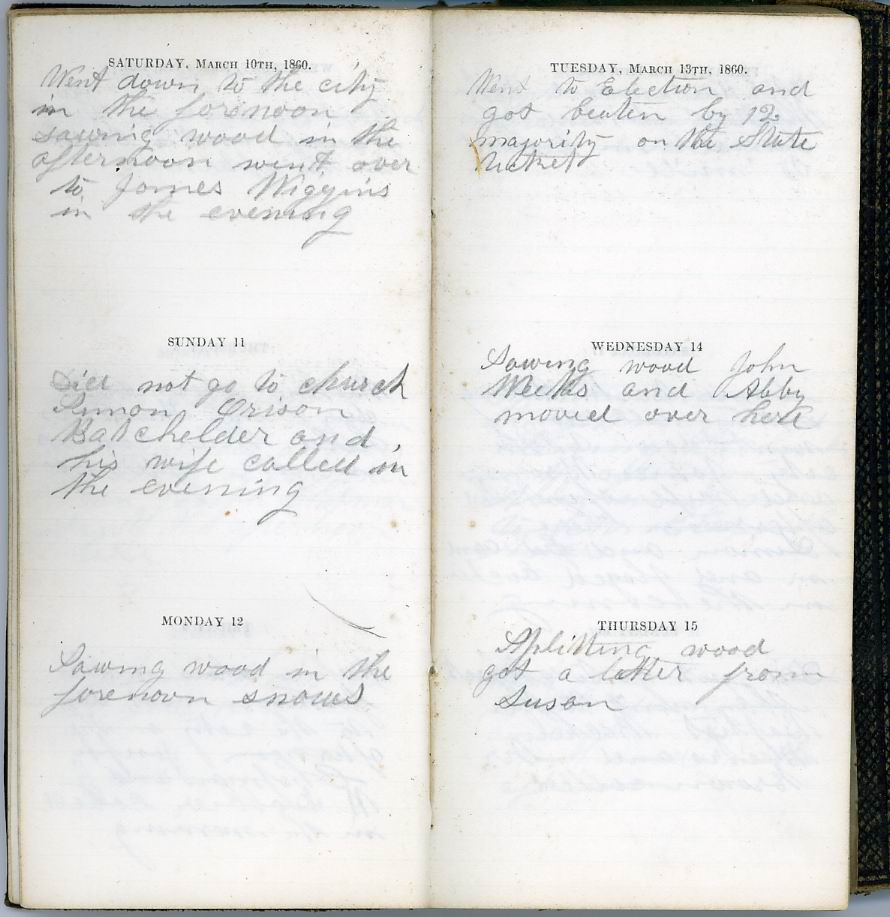 SATURDAY, MARCH 10TH, 1860.
Went down to the city
in the forenoon
sawing wood in the
afternoon went over
to James Wiggins
in the evening
SUNDAY 11
Did not go to church
Simon Orison
Batchelder and
his wife called in
the evening
MONDAY 12
Sawing wood in the
forenoon snows
TUESDAY, MARCH 13TH, 1860.
Went to Election and
got beaten by 12
majority on the State
ticket
WEDNESDAY 14
Sawing wood John
Weeks and Abby
moved over here
THURSDAY 15
Splitting wood
got a letter from
Susan